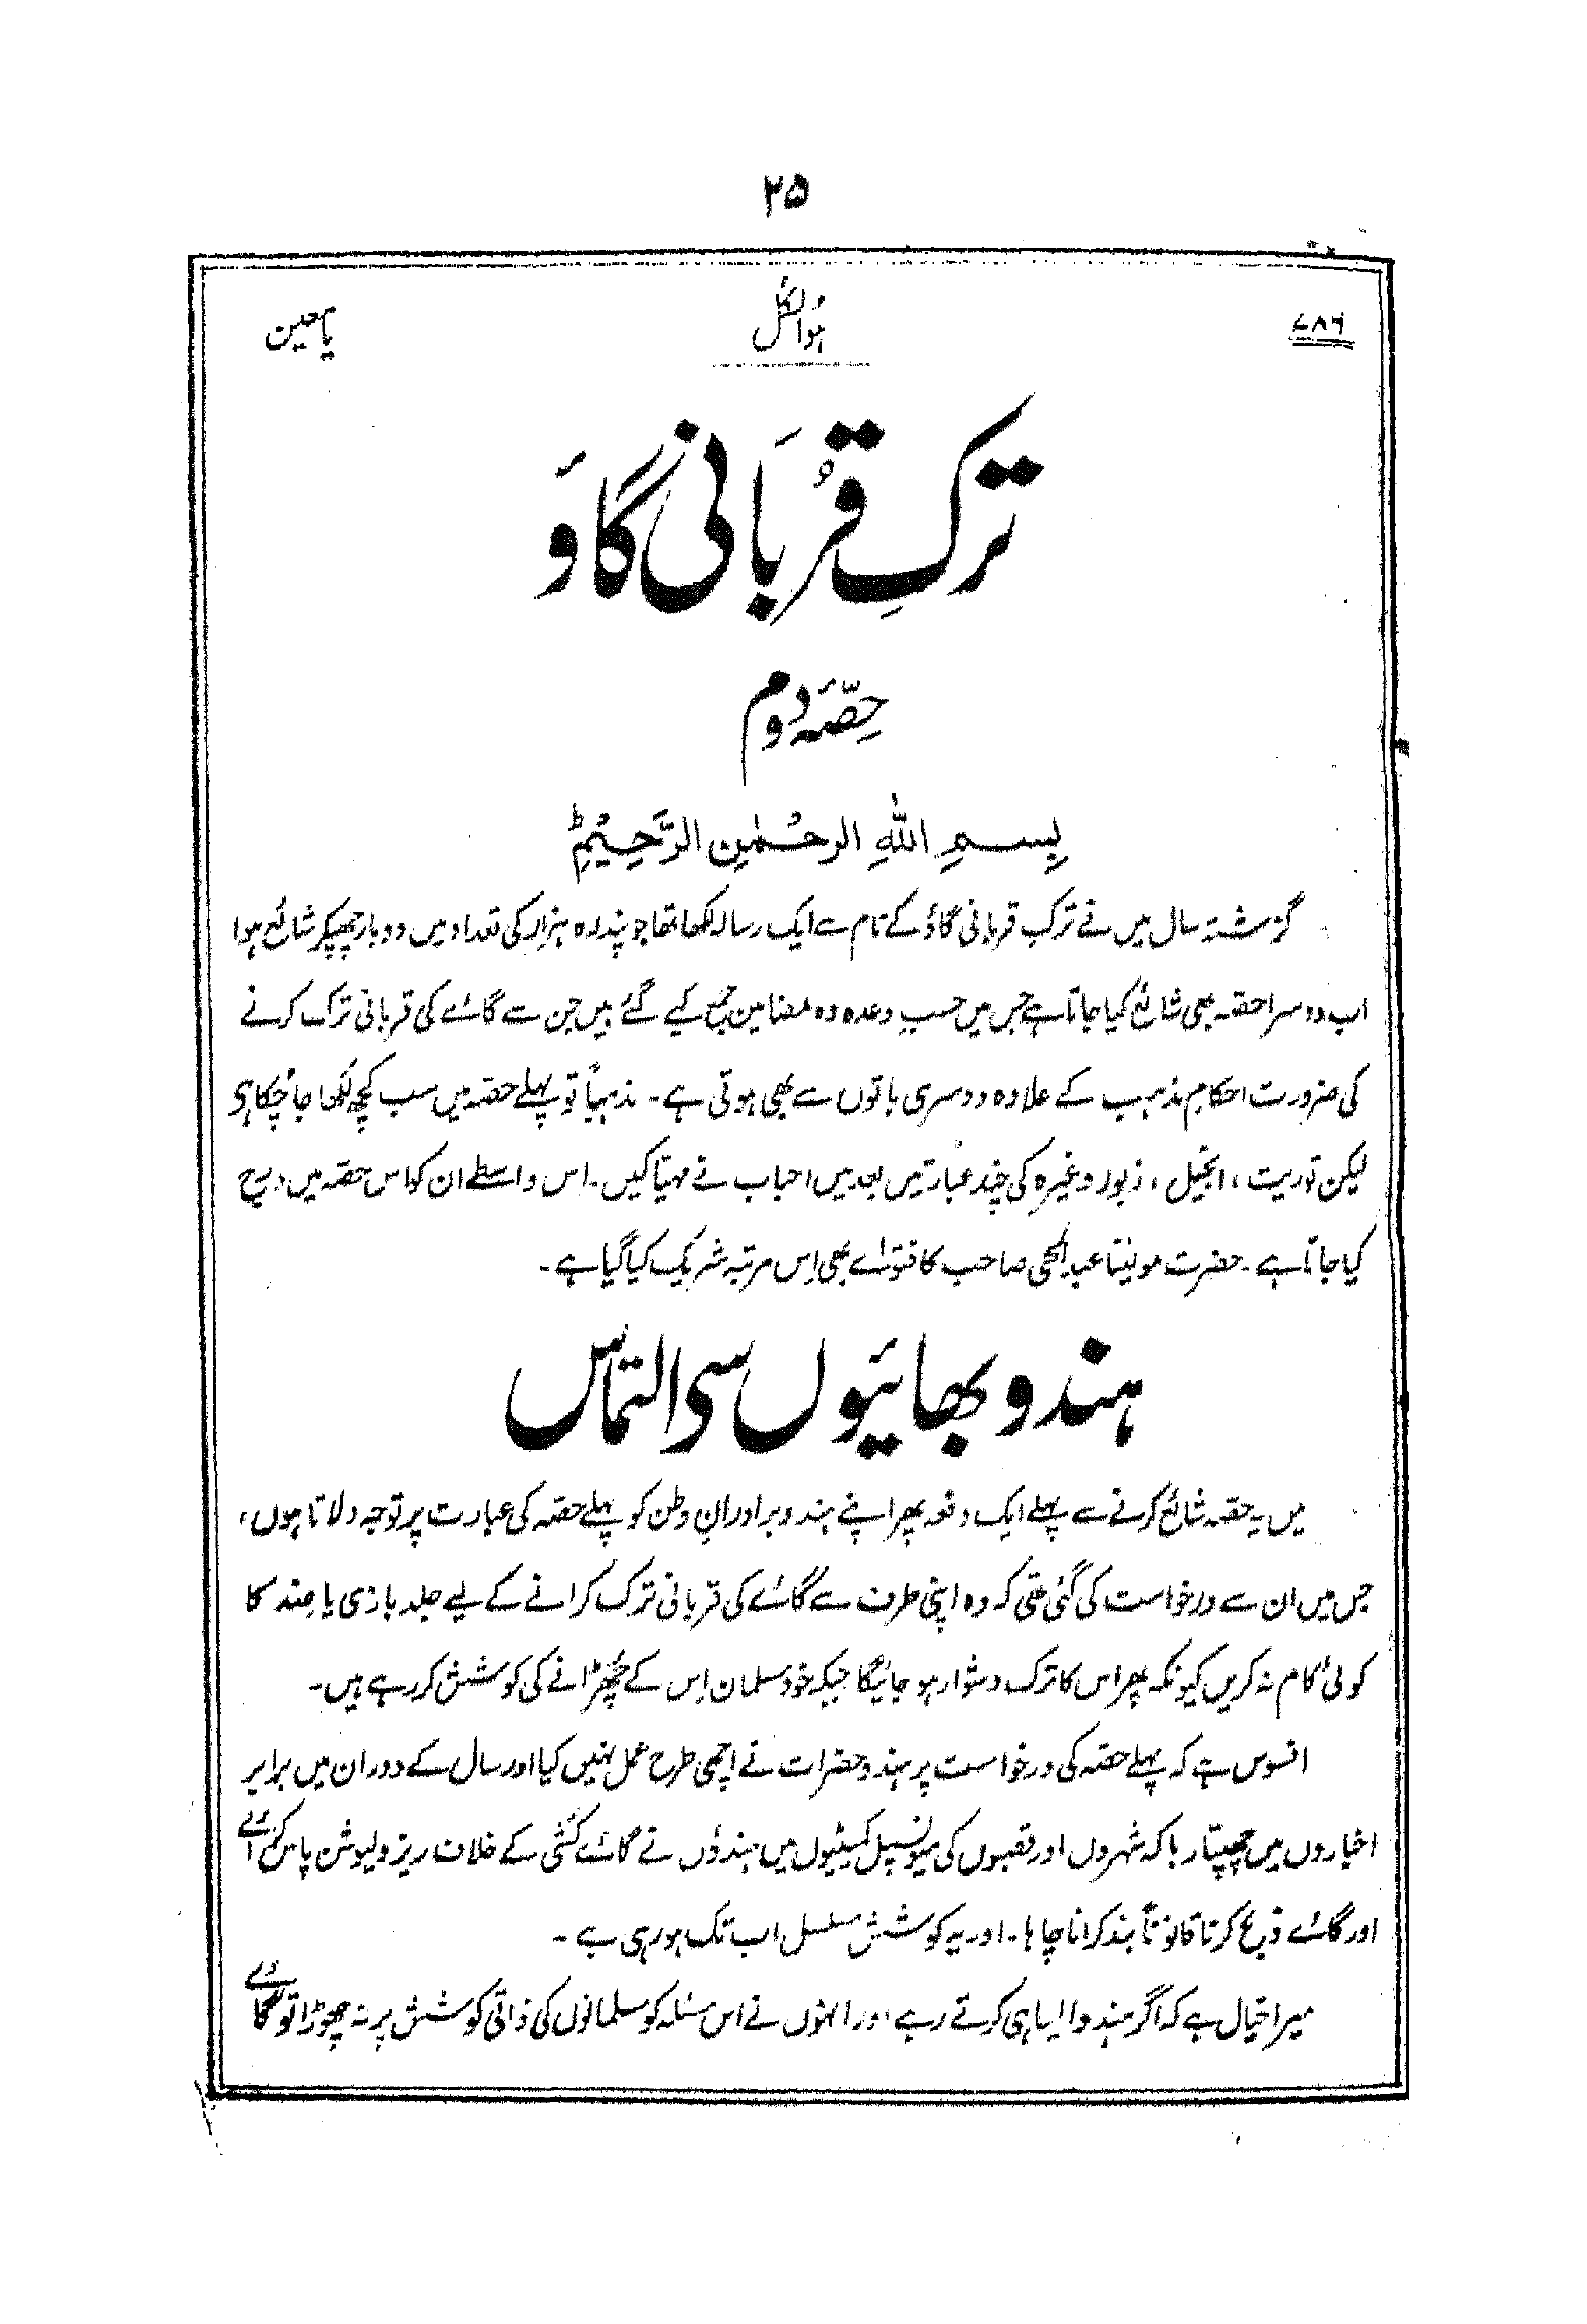 ۲۵
۷۸۶ ہُوَالکُل یا معین
ترکِ قُربَانی گاؤَ
حِصّہَ دوم
بِسمِ اللّٰہِ الرحْمٰنِ الرَّحِیْمِؕ
گزشتہ سال میں نے ترکِ قربانی گاؤ کے نام سے ایک رسالہ لکھا تھا جو پندرہ ہزار کی تعداد میں دوبار چھپکر شائع ہوا
اب دوسرا حصّہ بھی شائع کیا جاتا ہے جس میں حسبِ وعدہ وہ مضامین جمع کیے گئے ہیں جن سے گائے کی قربانی ترک کرنے
کی ضرورت احکامِ مذہب کے علاوہ دوسری باتوں سے بھی ہوتی ہے۔ مذہباً تو پہلے حصّہ میں سب کچھ لکھا جا چکا ہی
لیکن توریت، انجیل، زبور وغیرہ کی چند عبارتیں بعد میں احباب نے مہیّا کیں۔ اس واسطے ان کو اس حصّہ میں درج
کیا جاتا ہے۔ حضرت مولینٰا عبدالحی صاحب کا فتوٰے بھی اِس مرتبہ شریک کیا گیا ہے۔
ہندو بھائیوں سی التماس
میں یہ حصّہ شائع کرنے سے پہلے ایک دفعہ پھر اپنے ہندو برادرانِ وطن کو پہلے حصّہ کی عبارت پر توجہ دلاتا ہوں،
جس میں ان سے درخواست کی گئی تھی کہ وہ اپنی طرف سے گائے کی قربانی ترک کرانے کے لیے جلد بازی یا ضِد کا
کوئی کام نہ کریں کیونکہ پھر اس کا ترک دشوار ہو جائیگا جبکہ خود مسلمان اِس کے چُھڑانے کی کوشش کر رہے ہیں۔
افسوس ہے کہ پہلے حصّہ کی درخواست پر ہندو حضرات نے اچھی طرح عمل نہیں کیا اور سال کے دوران میں برابر
اخباروں میں چھپتا رہا کہ شہروں اور قصبوں کی میونسپل کمیٹیوں میں ہندؤں نے گائے کُشی کے خلاف ریزولیوشن پاس کرائے
اور گائے ذبح کرنا قانوناً بند کرانا چاہا۔ اور یہ کوشش مسلسل اب تک ہو رہی ہے۔
میرا خیال ہے کہ اگر ہندو ایسا ہی کرتے رہے اور انہوں نے اس مسئلہ کو مسلمانوں کی ذاتی کوشش پر نہ چھوڑا تو گائے